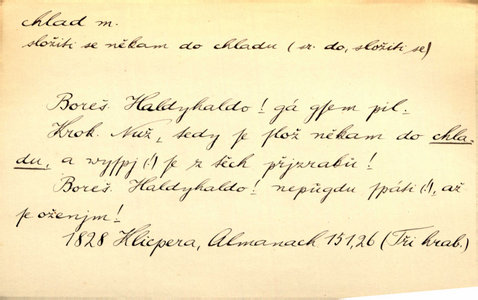 chlad m.
složiti se někam do chladu (sr. do, složiti se)
Boreš. Haldyhaldo! gá gsem pil.
Krok. Nuž, tedy se slož někam do chla-
du, a wyspj (!) se z těch přjzraků!
Boreš. Haldyhaldo! nepůgdu spáti (!), až
se oženjm!
1828 Klicpera, Almanach 151,26 (Tři hrab.)